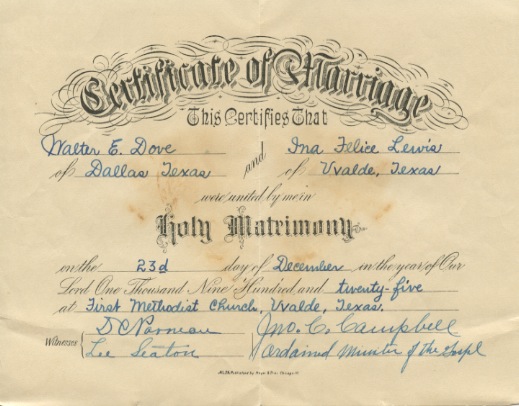 Certificate of Marriage
This Certifies That
Walter E. Dove and Ina Felice Lewis
of Dallas Texas of Uvalde, Texas
were united by me in
Holy Matrimony
on the 23d day of December in the year of Our
Lord One Thousand Nine Hundred and twenty-five
at First Methodist Church, Uvalde, Texas.
D C Jno. C. Campbell
Witnesses Lee Seaton Ordained Minister of the Gospel